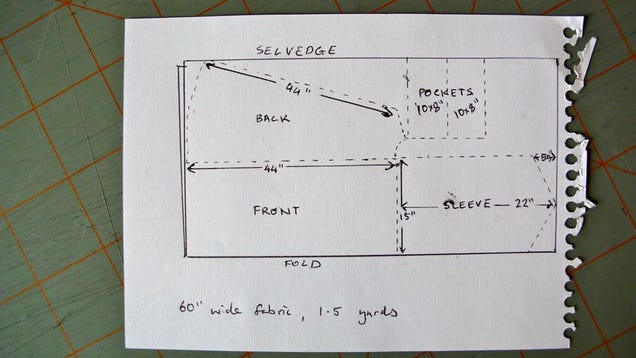 SELVEDGE
44"
POCKETS
10x8"
10x8"
BACK
44"
5"
FRONT
15"
SLEEVE — 22"
FOLD
60" wide fabric, 1.5 yards